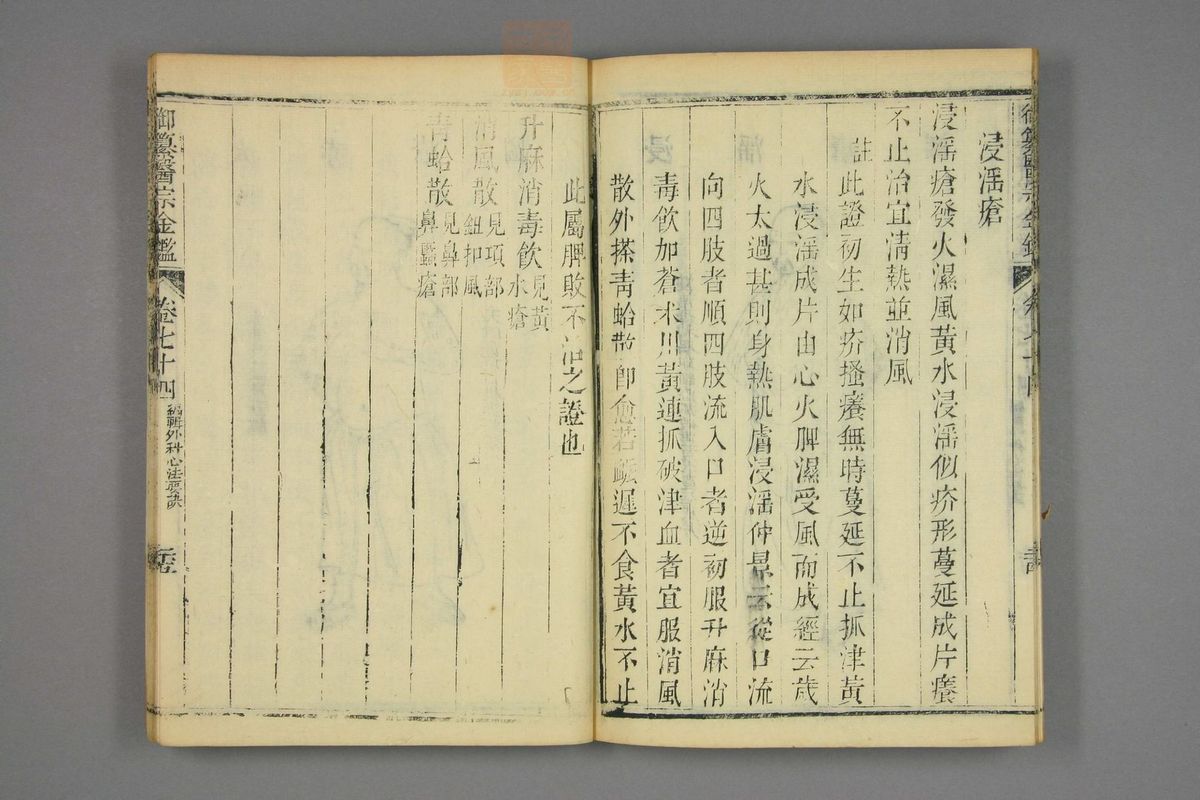 浸淫瘡
浸淫瘡發火濕風黃水浸淫似疥形蔓延成片癢
不止治宜清熱並消風
註此證初生如疥搔癢無時蔓延不止抓津黃
水浸淫成片由心火脾濕受風而成經云歲
火太過甚則身熱肌膚浸淫仲景云從口流
向四肢者順四肢流入口者逆初服升麻消
毒飲加蒼朮川黃連抓破津血者宜服消風
散外搽青蛤散即愈若遲不食黃水不止
此屬脾敗不治之證也
升麻消毒飲見黃水瘡
消風散見項部鈕扣風
青蛤散見鼻部鼻䘌瘡
御纂醫宗金鑑
卷七十四
編輯外科心法要訣